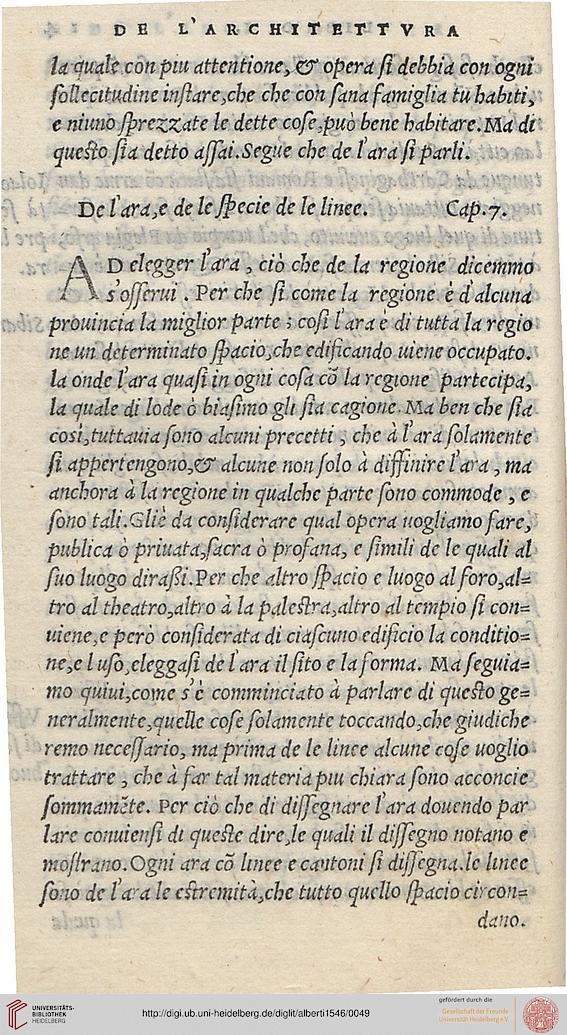 DE L'ARCHITETTVRA
la quale con piu attentione, & opera ſi debbia con ogni
ſollecitudine inſtare, che che con ſana famiglia tu habiti,
e niuno ſprezzate le dette coſe, può bene habitare. Ma di
queſto ſia detto aſſai. Segue che de l'ara ſi parli.
De l'ara, e de le ſpecie de le linee. Cap. 7.
AD elegger l'ara, ciò che de la regione dicemmo
s'oſſerui. Per che ſi come la regione è d'alcuna
prouincia la miglior parte; coſi l'ara è di tutta la regio
ne un determinato ſpacio, che edificando uiene occupato.
la onde l'ara quaſi in ogni coſa cõ la regione partecipa,
la quale di lode ò biaſimo gli ſia cagione. Ma ben che ſia
cosi, tuttauia ſono alcuni precetti, che à l'ara ſolamente
ſi appertengono, & alcune non ſolo à diffinire l'ara, ma
anchora à la regione in qualche parte ſono commode, e
ſono tali. Gliè da conſiderare qual opera uogliamo fare,
publica ò priuata, ſacra ò profana, e ſimili de le quali al
ſuo luogo diraßi. Per che altro ſpacio e luogo al foro, al=
tro al theatro, altro à la paleſtra, altro al tempio ſi con=
uiene, e però conſiderata di ciaſcuno edificio la conditio=
ne, e l uſo, eleggaſi de l'ara il ſito e la forma. Ma ſeguia=
mo quiui, come s'è comminciato à parlare di queſto ge=
neralmente, quelle coſe ſolamente toccando, che giudiche
remo neceſſario, ma prima de le linee alcune coſe uoglio
trattare, che à far tal materia piu chiara ſono acconcie
ſommamẽte. Per ciò che di diſſegnare l'ara douendo par
lare conuienſi di queſte dire, le quali il diſſegno notano e
moſtrano. Ogni ara cõ linee e cantoni ſi diſſegna. le linee
ſono de l'ara le eſtremità, che tutto quello ſpacio circon=
dano.
UNIVERSITÄTS-
BIBLIOTHEK
HEIDELBERG
http://digi.ub.uni-heidelberg.de/diglit/alberti1546/0049
gefördert durch die
Gesellschaft der Freunde
Universität Heidelberg e.V.